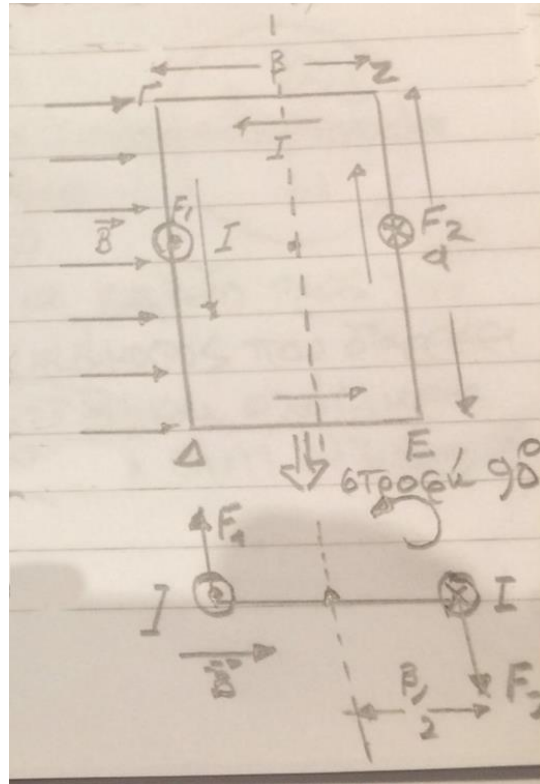 β
Γ Z
I
F₁ F₂
B⃗ I α
Δ E
στροφή 90°
F₁
I I
B⃗
β/2 F₂